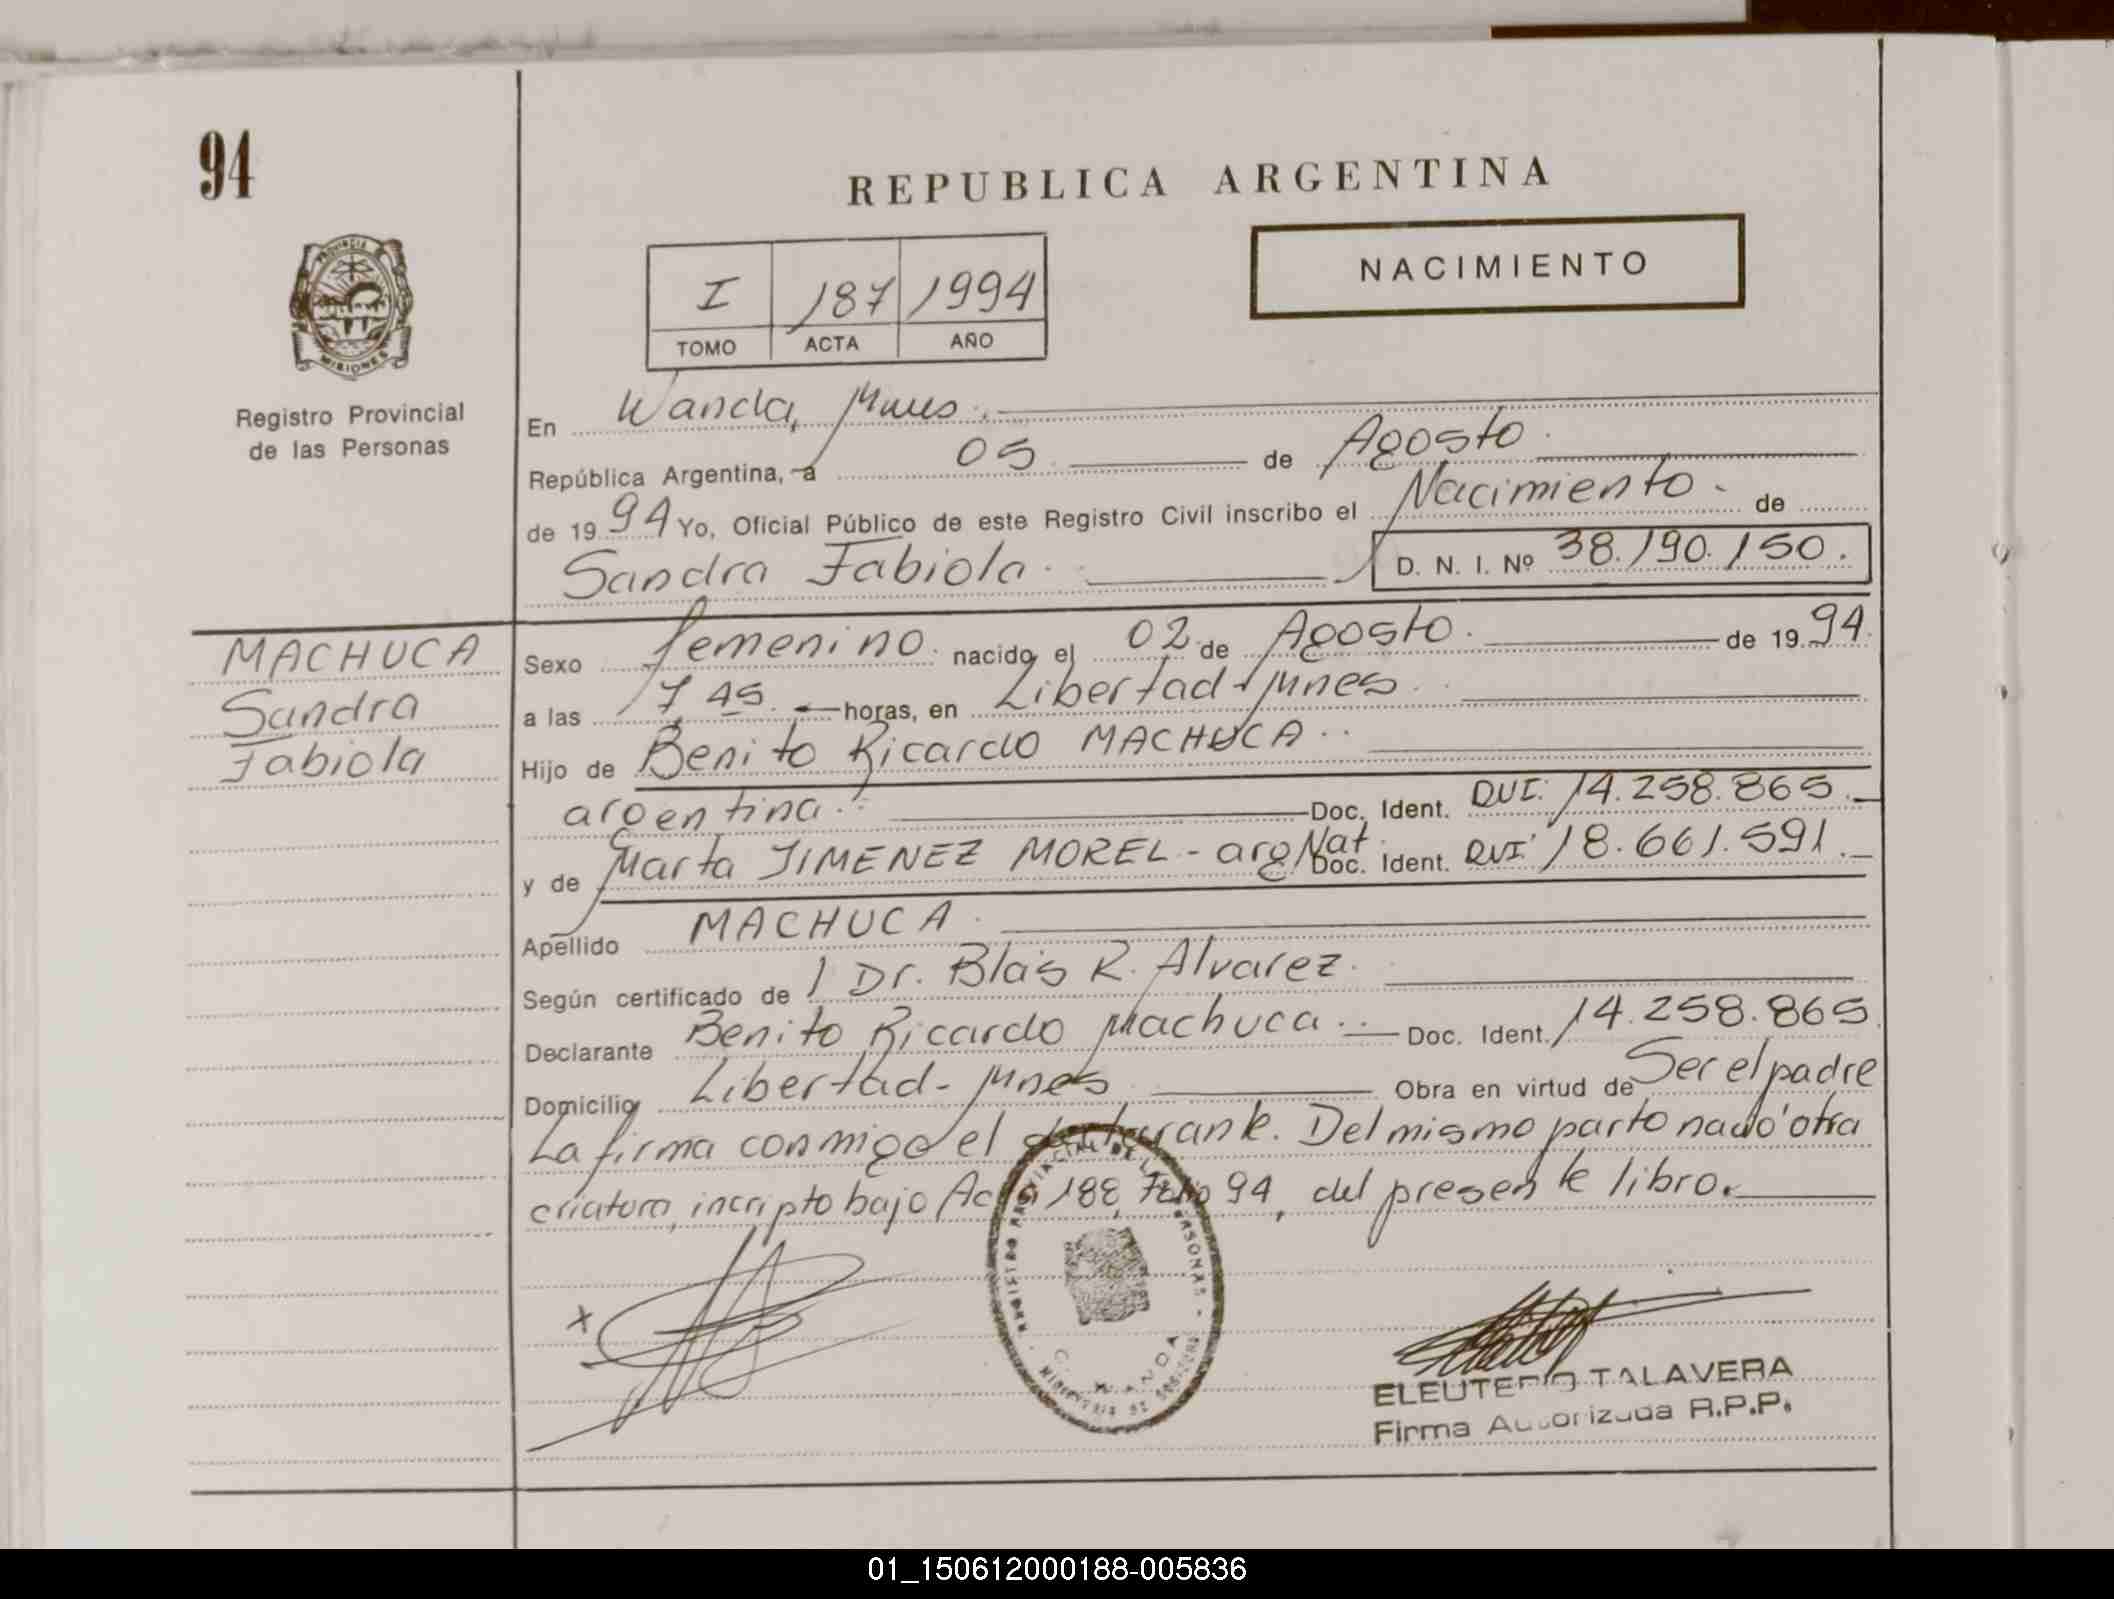 94
REPUBLICA ARGENTINA
NACIMIENTO
I 187 1994
TOMO ACTA AÑO
PROVINCIA
MISIONES
Registro Provincial
de las Personas
En Wanda, Mnes.
República Argentina, a 05 de Agosto
de 1994 Yo, Oficial Público de este Registro Civil inscribo el Nacimiento de
Sandra Fabiola. D. N. I. Nº 38.190.150.
MACHUCA
Sandra
Fabiola
Sexo femenino. nacido el 02 de Agosto. de 1994.
a las 7 45 horas, en Libertad-Mnes.
Hijo de Benito Ricardo MACHUCA
argentina. Doc. Ident. DUI. 14.258.865.
y de Marta JIMENEZ MOREL- arg Nat Doc. Ident. DUI 18.661.591.
Apellido MACHUCA
Según certificado de Dr. Blas R. Alvarez.
Declarante Benito Ricardo Machuca. Doc. Ident. 14.258.865
Domicilio Libertad- Mnes Obra en virtud de Ser el padre
La firma conmigo el declarante. Del mismo parto nació otra
criatura, incripto bajo Acta 188, Folio 94, del presente libro.
REGISTRO PROVINCIAL DE LAS PERSONAS
WANDA
x
ELEUTERIO TALAVERA
Firma Autorizada R.P.P.
01_150612000188-005836